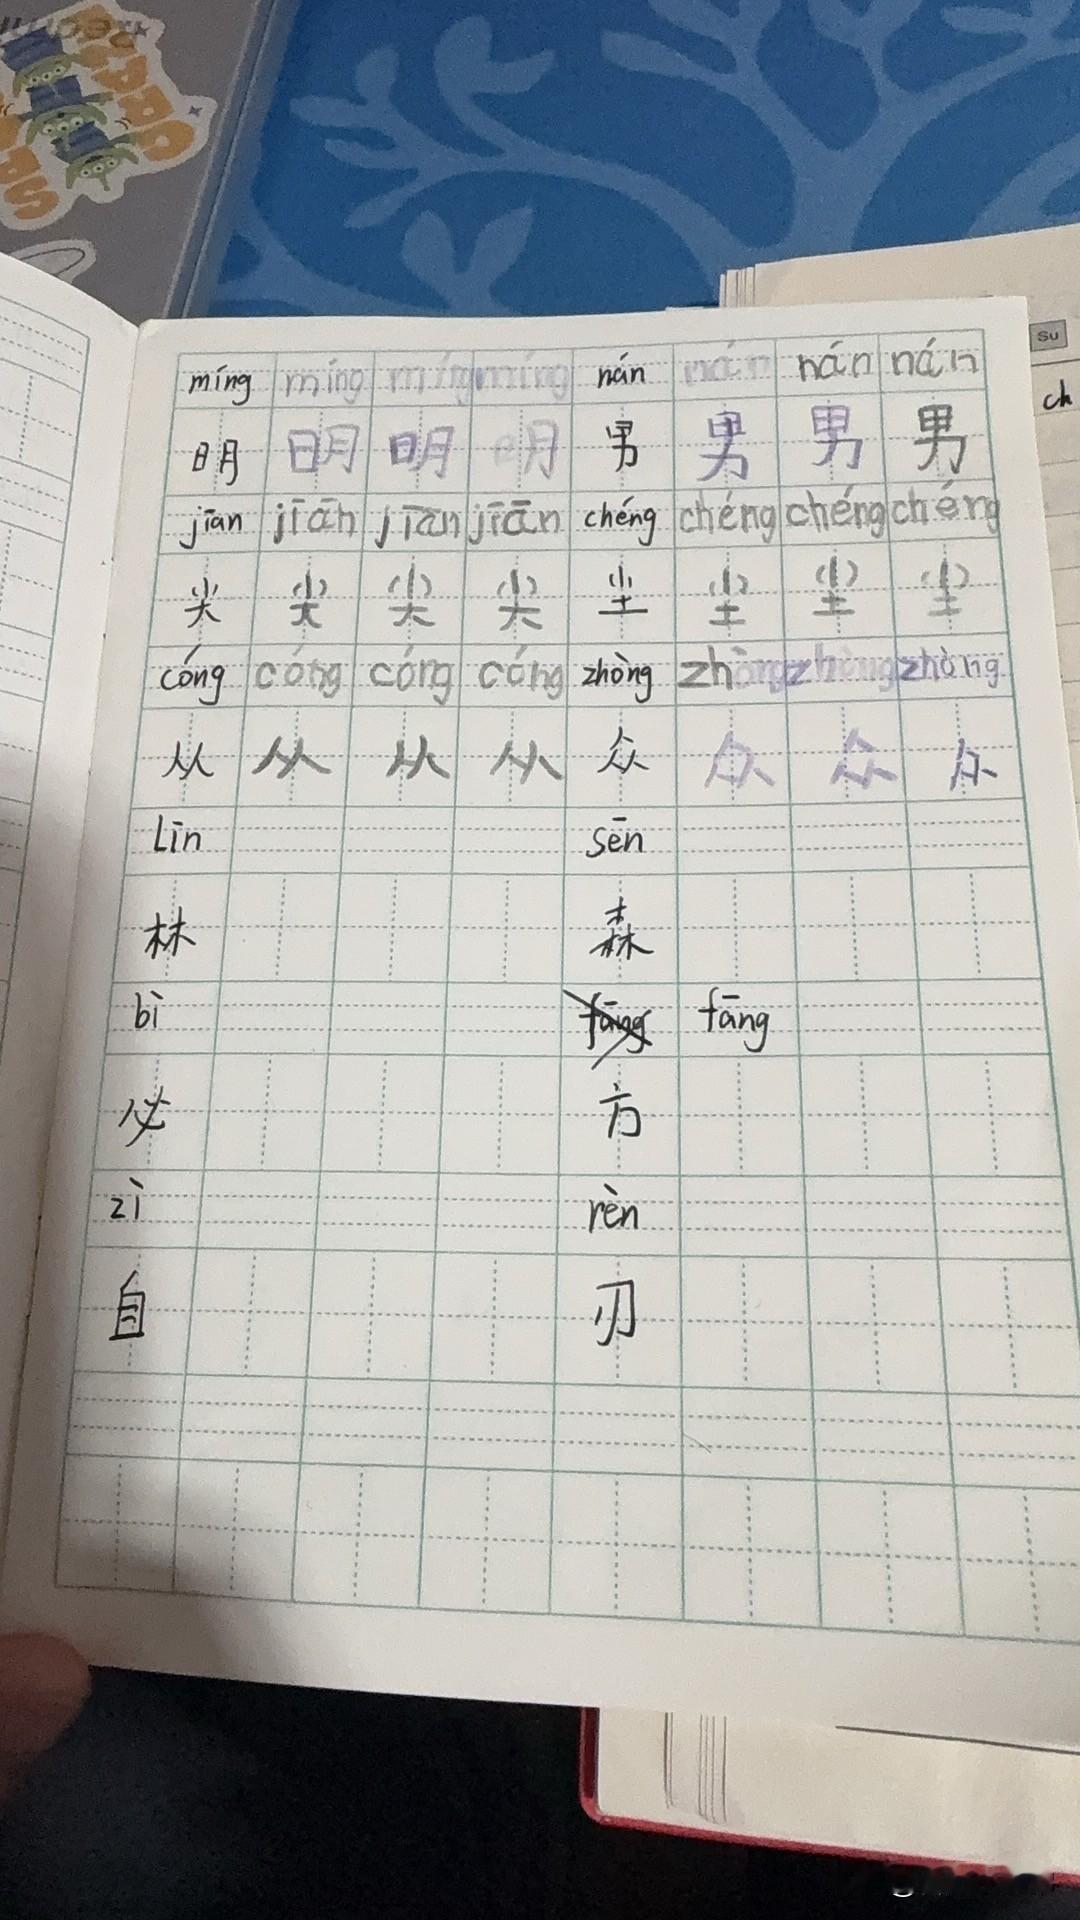 míng míng míng míng nán nán nán nán
明 明 明 明 男 男 男 男
jiān jiān jiān jiān chéng chéng chéng chéng
尖 尖 尖 尖 尘 尘 尘 尘
cóng cóng cóng cóng zhòng zhòng zhòng zhòng
从 从 从 从 众 众 众 众
Līn sēn
林 森
bì fāng fāng
必 方
zì rèn
自 刃
Su
ch